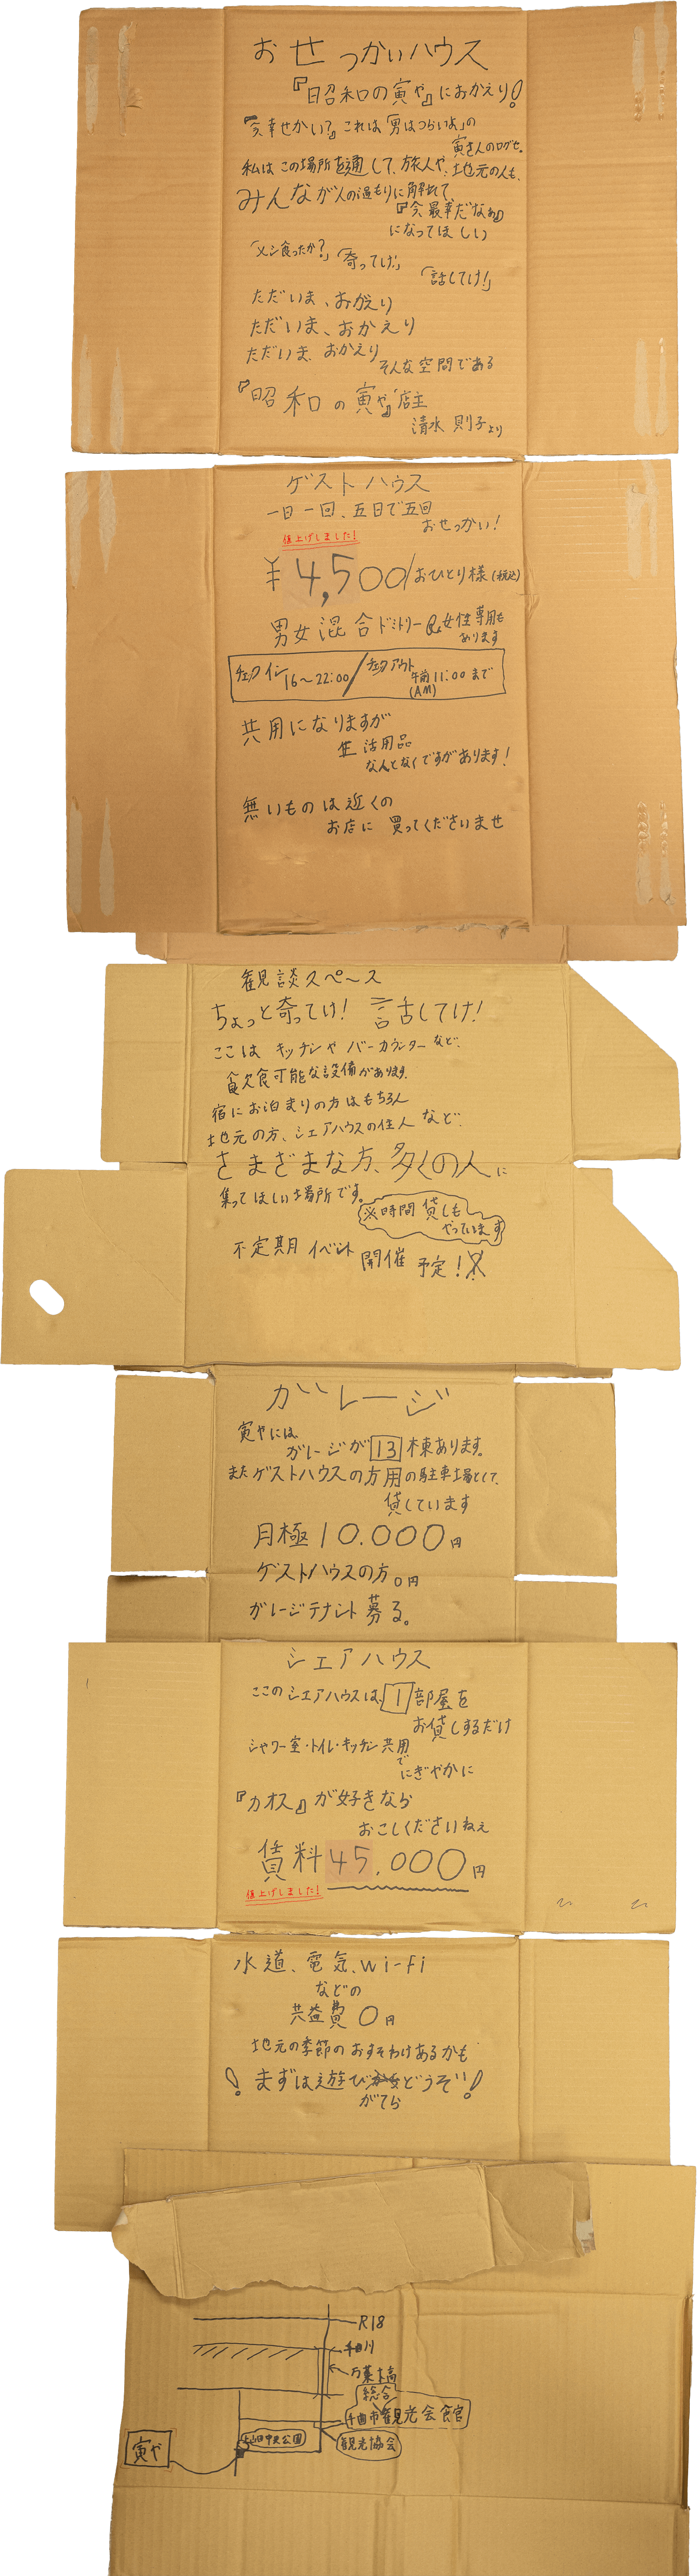 おせっかいハウス
『昭和の寅や』におかえり!
『今幸せかい?』これは「男はつらいよ」の
寅さんの口グセ。
私はこの場所を通して、旅人や、地元の人も、
みんなが人の温もりに触れて、
『今最幸だなぁ』
になってほしい
「メシ食ったか?」「寄ってけ!」
「話してけ!」
ただいま、おかえり
ただいま、おかえり
ただいま、おかえり
そんな空間である
『昭和の寅や』店主
清水 則子より
ゲストハウス
一日一回、五日で五回
おせっかい!
値上げしました!
¥4,500/おひとり様(税込)
男女混合ドミトリー&女性専用も
あります
チェックイン16〜22:00/チェックアウト
午前11:00まで
(AM)
共用になりますが
生活用品
なんとなくですがあります!
無いものは近くの
お店に買ってくださいませ
観談スペース
ちょっと寄ってけ! 話してけ!
ここはキッチンやバーカウンターなど、
飲食可能な設備があります。
宿にお泊まりの方はもちろん
地元の方、シェアハウスの住人など、
さまざまな方、多くの人に
集ってほしい場所です。
※時間貸しも
やっています
不定期イベント開催予定!
ガレージ
寅やには、
ガレージが13棟あります。
またゲストハウスの方用の駐車場として、
貸しています
月極10.000円
ゲストハウスの方0円
ガレージテナント募る。
シェアハウス
ここのシェアハウスは、1部屋を
お貸しするだけ
シャワー室・トイレ・キッチン共用
で
にぎやかに
『カオス』が好きなら
おこしくださいねぇ
賃料45.000円
値上げしました!
水道、電気、wi-fi
などの
共益費0円
地元の季節のおすそわけあるかも
!まずは遊びどうぞ!
がてら
R18
千曲川
万葉橋
総合
千曲市観光会館
上山田中央公園
観光協会
寅や